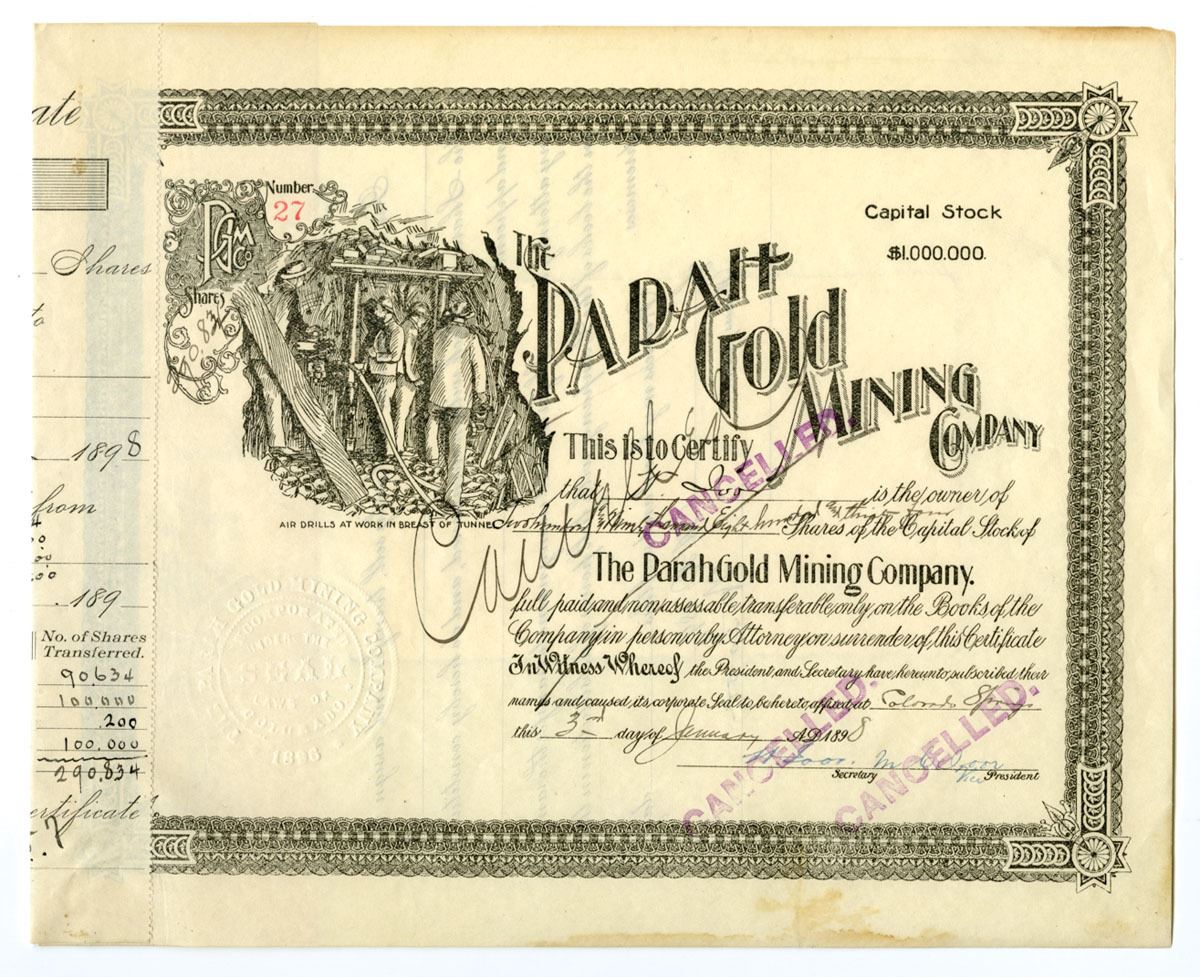 ate
Shares
to
1898
from
00
.189
No. of Shares
Transferred.
90.634
100000
200
100.000
290.834
ertificate
7
Number
27
P G M Co
Shares
AIR DRILLS AT WORK IN BREAST OF TUNNEL
Capital Stock
$1.000.000.
The
PARAH
Gold
MINING
COMPANY
This is to Certify
that is the owner of
Shares of the Capital Stock of
The Parah Gold Mining Company.
full paid and non assessable, transferable only on the Books of the
Company in person or by Attorney on surrender of this Certificate
In Witness Whereof the President and Secretary have hereunto subscribed their
names and caused its corporate Seal to be hereto affixed at Colorado Springs
this 3rd day of January A.D. 1898
Secretary Vice President
CANCELLED.
CANCELLED.
CANCELLED.
GOLD MINING COMPANY
SEAL
COLORADO
1896